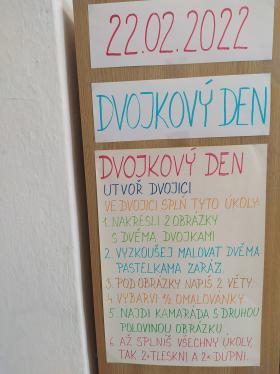 22.02.2022
DVOJKOVÝ DEN
DVOJKOVÝ DEN
UTVOŘ DVOJICI
VE DVOJICI SPLŇ TYTO ÚKOLY:
1. NAKRESLI 2 OBRÁZKY
S DVĚMA DVOJKAMI
2. VYZKOUŠEJ MALOVAT DVĚMA
PASTELKAMA ZARÁZ.
3. POD OBRÁZKY NAPIŠ 2 VĚTY.
4. VYBARVI 1/2 OMALOVÁNKY.
5. NAJDI KAMARÁDA S DRUHOU
POLOVINOU OBRÁZKU.
6. AŽ SPLNÍŠ VŠECHNY ÚKOLY,
TAK 2x TLESKNI A 2x DUPNI.